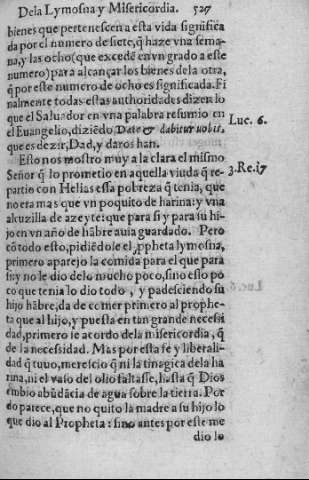 De la Lymosna y Misericordia. 527
bienes que pertenescen a esta vida significa
da por el numero de siete, q̃ haze vna sema-
na, y las ocho (que excedẽ en vn grado a este
numero) para alcançar los bienes de la otra,
q̃ por este numero de ocho es significada. Fi
nalmente todas estas authoridades dizen lo
que el Saluador en vna palabra resumio en
el Euangelio, diziẽdo Date & dabitur vobis,
Luc. 6.
que es dezir, Dad, y daros han.
Esto nos mostro muy a la clara el mismo
Señor q̃ lo prometio en aquella viuda q̃ re-
3. Re. 17
partio con Helias essa pobreza q̃ tenia, que
no era mas que vn poquito de harina: y vna
alcuzilla de azeyte: que para si y para su hi-
jo en vn año de hãbre auia guardado. Pero
cõ todo esto, pidiẽdole el ꝓpheta lymosna,
primero aparejo la comida para el que para
si: y no le dio de lo mucho poco, sino esso po
co que tenia lo dio todo, y padesciendo su
hijo hãbre, da de comer primero al prophe-
ta que al hijo, y puesta en tan grande necessi
dad, primero se acordo de la misericordia, q̃
de la necessidad. Mas por esta fe y liberali-
dad q̃ tuuo, merescio q̃ ni la tinagica de la ha
rina, ni el vaso del olio faltasse, hasta q̃ Dios
embio abũdãcia de agua sobre la tierra. Por
do parece, que no quito la madre a su hijo lo
que dio al Propheta: sino antes por este me
dio lo